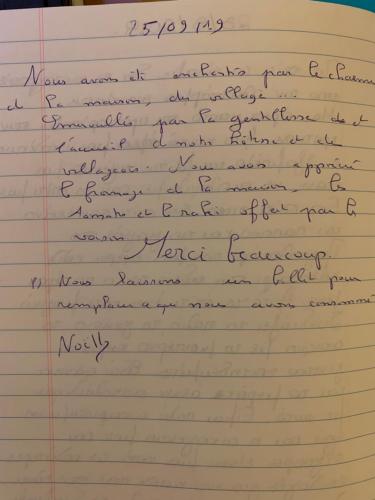 25/09/19
Nous avons été enchantés par le charme
de la maison, du village...
Émerveillés par la gentillesse de et
l'accueil de notre hôtesse et de
villageois. Nous avons apprécié
le fromage de la maison, les
tomates et le raki offert par le
voisin
Merci beaucoup.
Nous laissons un billet pour
remplacer ce que nous avons consommé